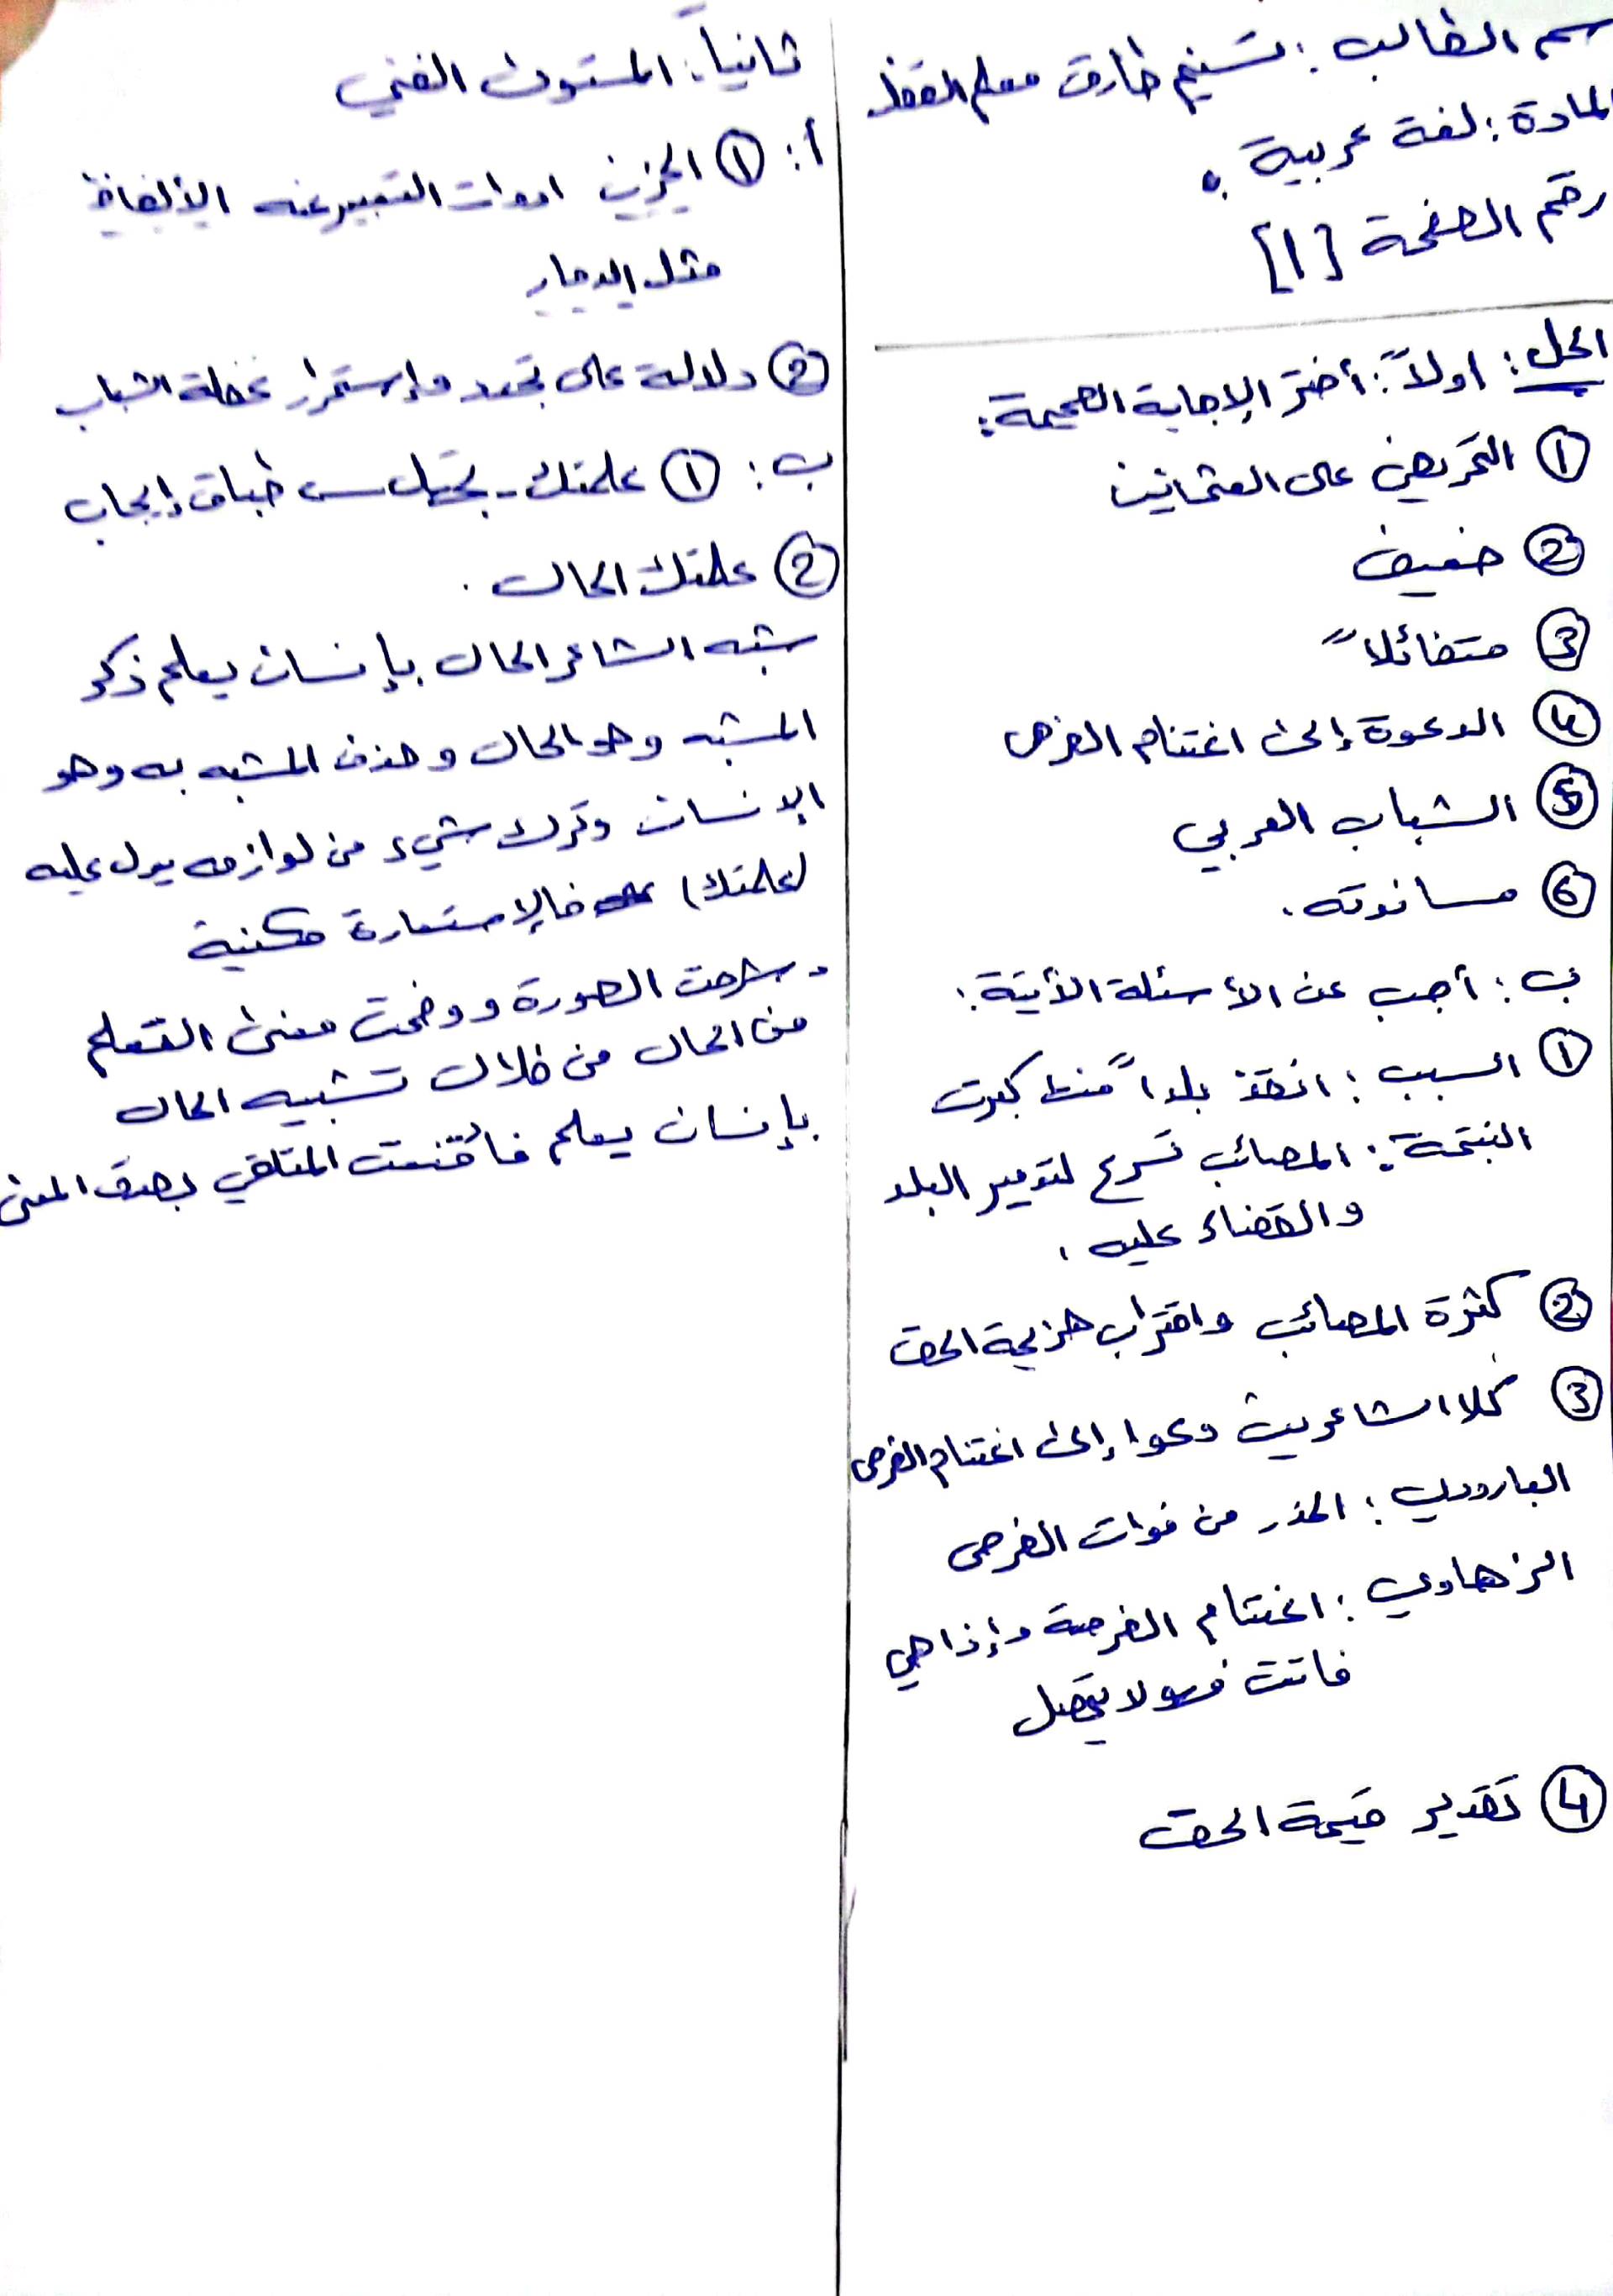 سم الطالب : تسنيم طارق معلم القفظ
المادة : لغة عربية .
رقم الصفحة [1]
الحل : اولاً : أختر الإجابة الصحيحة :
① التحريض على العثمانين
② خفيف
③ متفائلاً
④ الدعوة إلى اغتنام الفرص
⑤ الشباب العربي
⑥ مساندته .
ب : أجب عن الأسئلة الأتية :
① السبب : انقذ بلداً منذ كبرت
النتيجة : المصائب تسرع لتدمير البلد
والقضاء عليه .
② كثرة المصائب واقتراب هزيمة الحق
③ كلا الشاعرين دعوا إلى اغتنام الفرص
البارودي : الحذر من فوات الفرص
الزهاوي : اغتنام الفرصة وإذا هي
فاتت فهو لا يحصل
④ تقدير قيمة الحق
ثانياً : المستوى الفني
أ : ① الحزن ادوات التعبير عنه الألفاظ
مثل الدمار
② دلالة على تجدد وإستمرار غفلة الشباب
ب : ① علمتك - بجهل ← طباق إيجاب
② علمتك الحال .
شبه الشاعر الحال بإنسان يعلم ذكر
المشبه وهو الحال وحذف المشبه به وهو
الإنسان وترك شيء من لوازمه يدل عليه
(علمتك) فالإستعارة مكنية
- شرحت الصورة ووضحت معنى التعلم
من الحال من خلال تشبيه الحال
بإنسان يعلم فأقنعت المتلقي بصدق المعنى